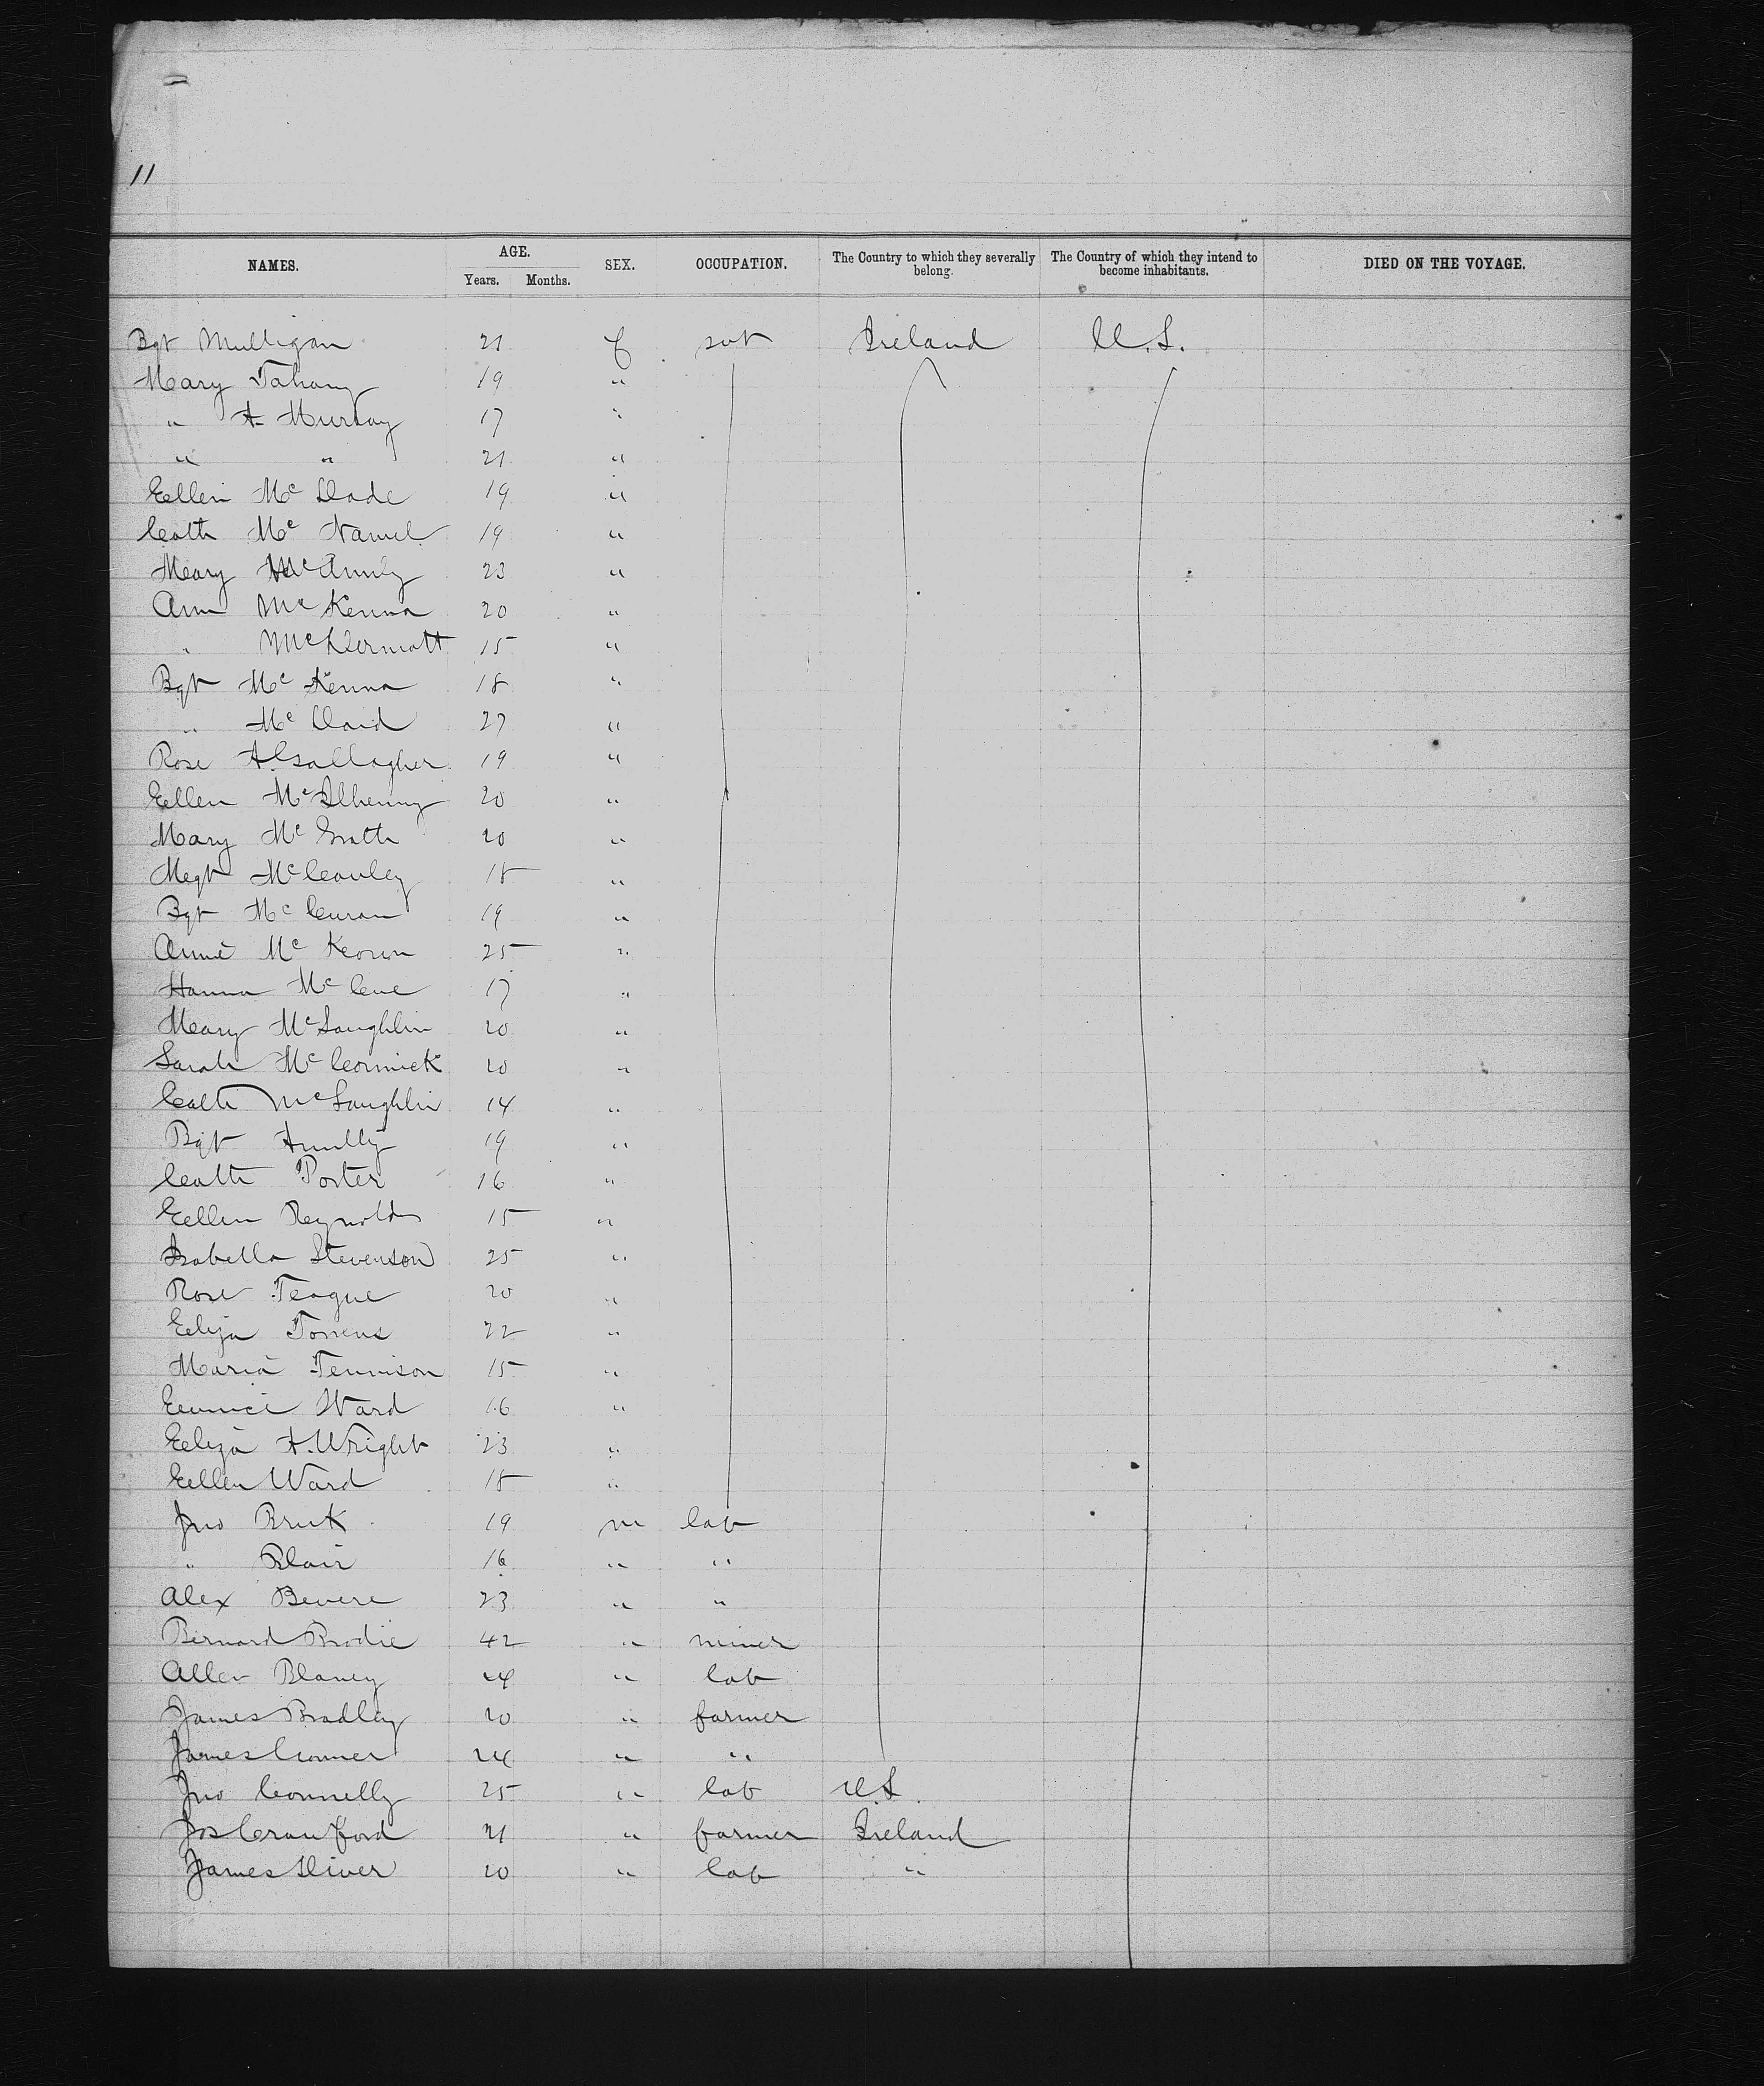 11
NAMES. AGE. Years. Months. SEX. OCCUPATION. The Country to which they severally belong. The Country of which they intend to become inhabitants. DIED ON THE VOYAGE.
Bgt Mulligan 21 f Ireland U.S.
Mary Tahany 19 "
" A Murray 17 "
" " 21 "
Ellen Mc Dade 19 "
Cath Mc 19 "
Mary McAnnly 23 "
Ann McKenna 20 "
" McDermott 15 "
Bgt McKenna 18 "
" McDaid 27 "
Rose A Gallagher 19 "
Ellen McIlhenny 20 "
Mary McGrath 20 "
Mgt McCauley 18 "
Bgt McCuran 19 "
Annie McKeown 25 "
Hanna McCue 17 "
Mary McLaughlin 20 "
Sarah McCormick 20 "
Cath McLaughlin 14 "
Bgt 19 "
Cath Porter 16 "
Ellen Reynolds 15 "
Isabella Stevenson 25 "
Rose Teague 20 "
Eliza Torrens 22 "
Maria Tennison 15 "
Ward 16 "
Eliza A. Wright 23 "
Ellen Ward 18 "
Jno 19 m lab
" Blair 16 " "
Alex Bevere 23 " "
Bernard Brodie 42 " miner
Allen Blaney 24 " lab
James Bradley 20 " farmer
James Conner 24 " "
Jno Connelly 25 " lab U.S.
Jos Crawford 21 " farmer Ireland
James Diver 20 " lab "